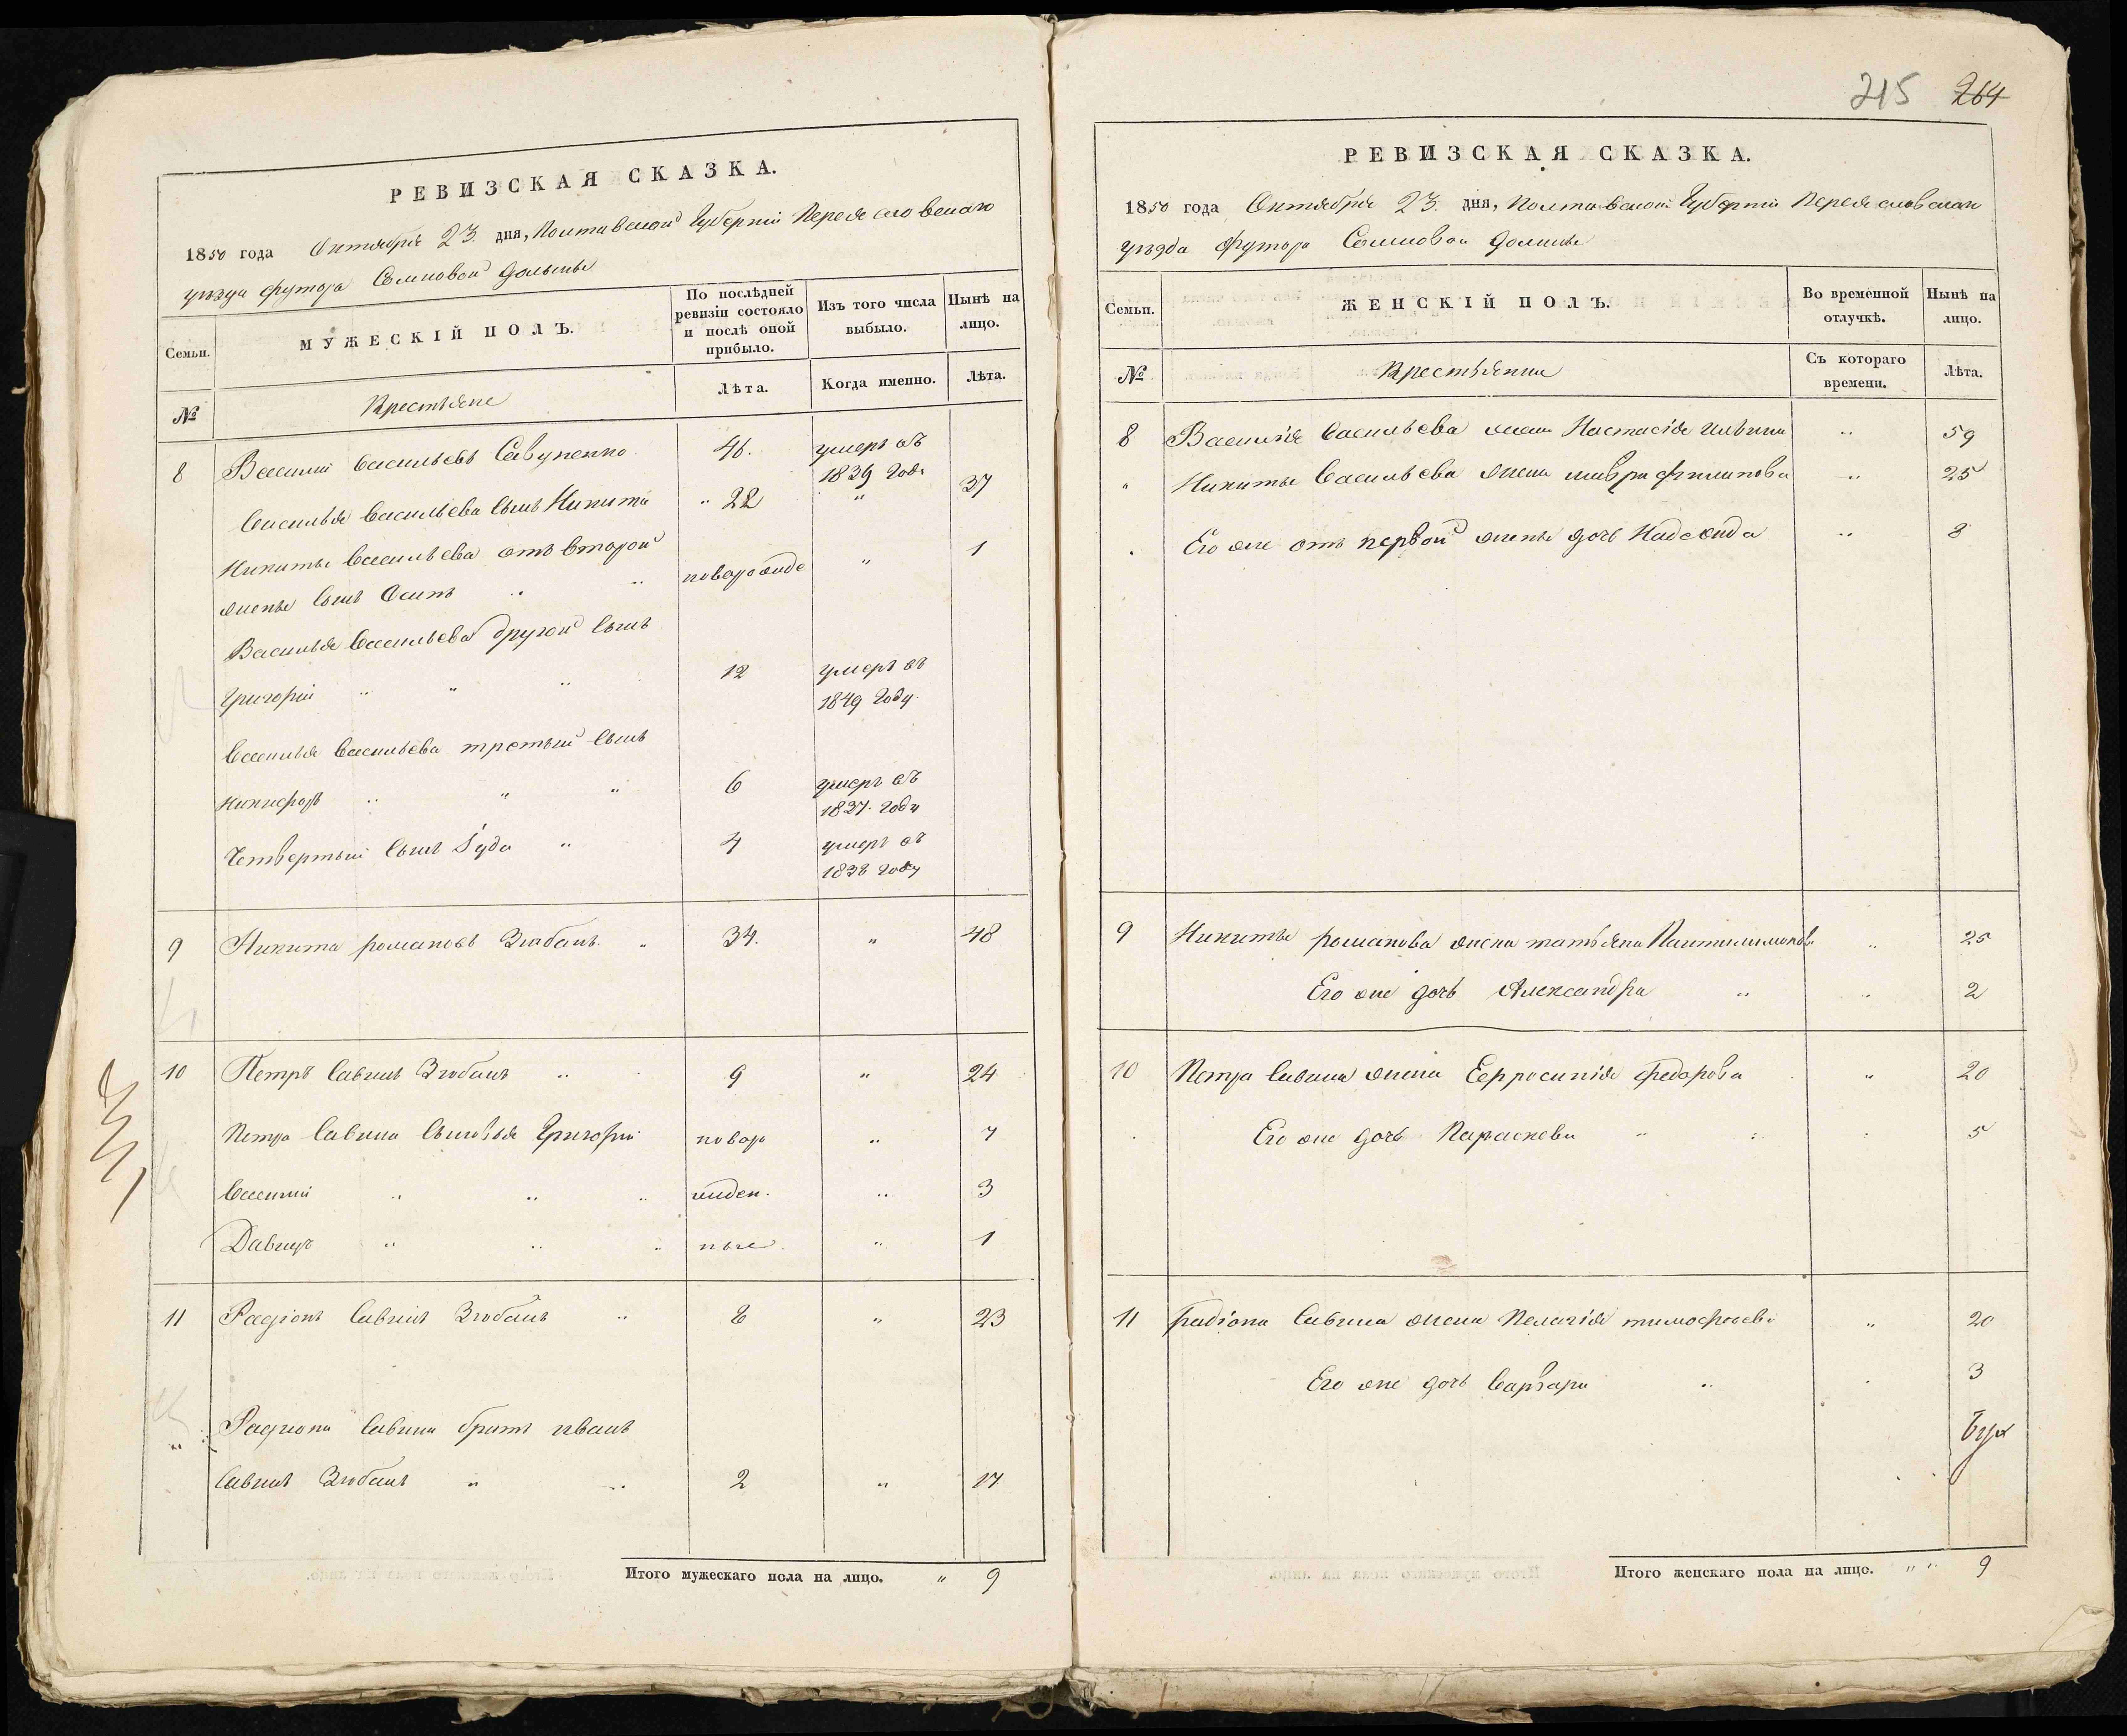 РЕВИЗСКАЯ СКАЗКА.
1850 года Октября 23 дня, Полтавской Губерніи Переясловскаго
уезда футора Сомковой Долины
Семьи.
МУЖЕСКІЙ ПОЛЪ.
По послѣдней ревизіи состояло и послѣ оной прибыло.
Изъ того числа выбыло.
Нынѣ на лицо.
№
Крестьяне
Лѣта.
Когда именно.
Лѣта.
8 Василий Васильевъ Савуненко 46. умеръ въ
1839 годе
Василья Васильева сынъ Никита 22 " 37
Никиты Васильева отъ второй
жены сынъ Осипъ новорожде " 1
Василья Васильева другой сынъ
Григорій 12 умеръ въ
1849 году
Василья Васильева третьий сынъ
Никифоръ 6 умеръ въ
1837 году
Четвертый сынъ Іуда 4 умеръ въ
1838 году
9 Никита романовъ Зюбанъ 34. " 48
10 Петръ Савинъ Зюбанъ 9 " 24
Петра Савина сыновья Григорій новоро " 7
Василий жден. " 3
Давидъ ные " 1
11 Радіонъ Савинъ Зюбанъ 8 " 23
Радиона Савина братъ иванъ
Савинъ Зюбанъ 2 " 17
Итого мужескаго пола на лицо. " 9
215 264
РЕВИЗСКАЯ СКАЗКА.
1850 года Октября 23 дня, Полтавской Губерніи Переясловскаго
уезда футора Сомковой Долины
Семьи.
ЖЕНСКІЙ ПОЛЪ.
Во временной отлучкѣ.
Нынѣ на лицо.
№
Крестьянки
Съ котораго времени.
Лѣта.
8 Василія Васильева жена Настасія Ильина " 59
" Никиты Васильева жена мавра филипова " 25
Его же отъ первой жены дочь Надежда " 8
9 Никиты романова жена татьяна Пантилимонова " 25
Его же дочь Александра " 2
10 Петра Савина жена Ефросинія федорова " 20
Его же дочь Параскева " 5
11 радіона Савина жена Пелагія тимофеева " 20
Его же дочь Варвара " 3
Итого женскаго пола на лицо. " " 9